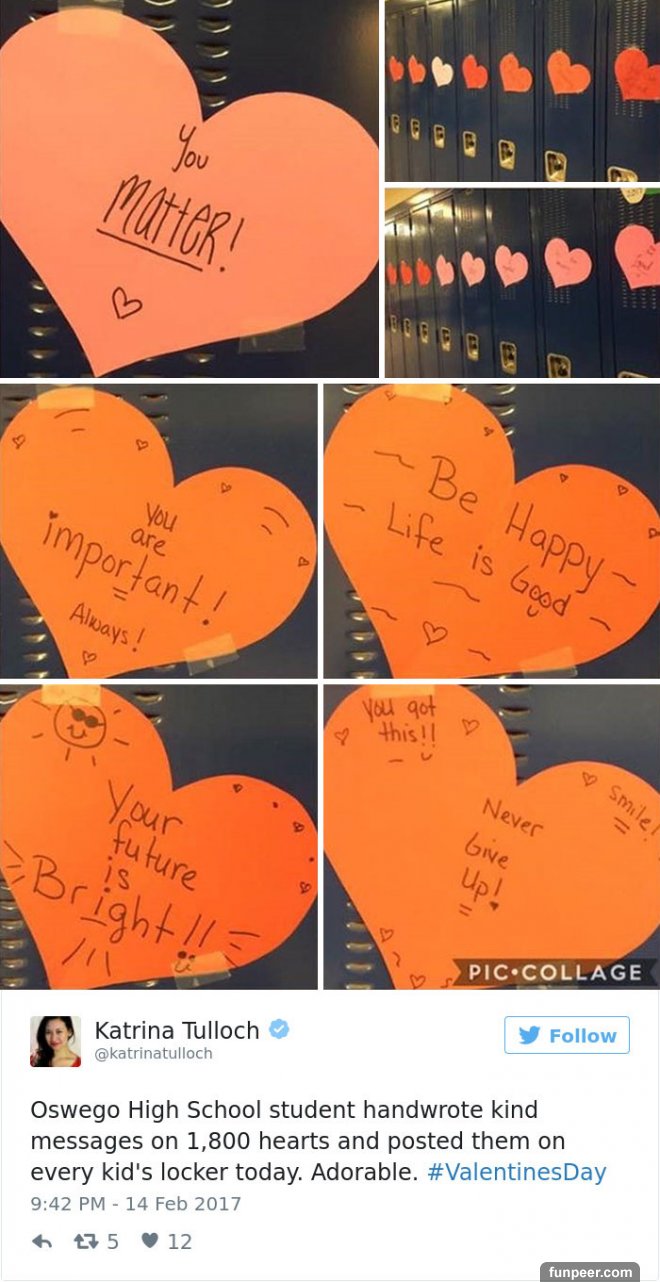 You
MATTER!
You
are
important!
Always!
Be Happy
Life is Good
Your
future
is
Bright!!
You got
this!!
Never
Give
Up!
Smile!
PIC•COLLAGE
Katrina Tulloch
@katrinatulloch
Follow
Oswego High School student handwrote kind
messages on 1,800 hearts and posted them on
every kid's locker today. Adorable. #ValentinesDay
9:42 PM - 14 Feb 2017
5 12
funpeer.com